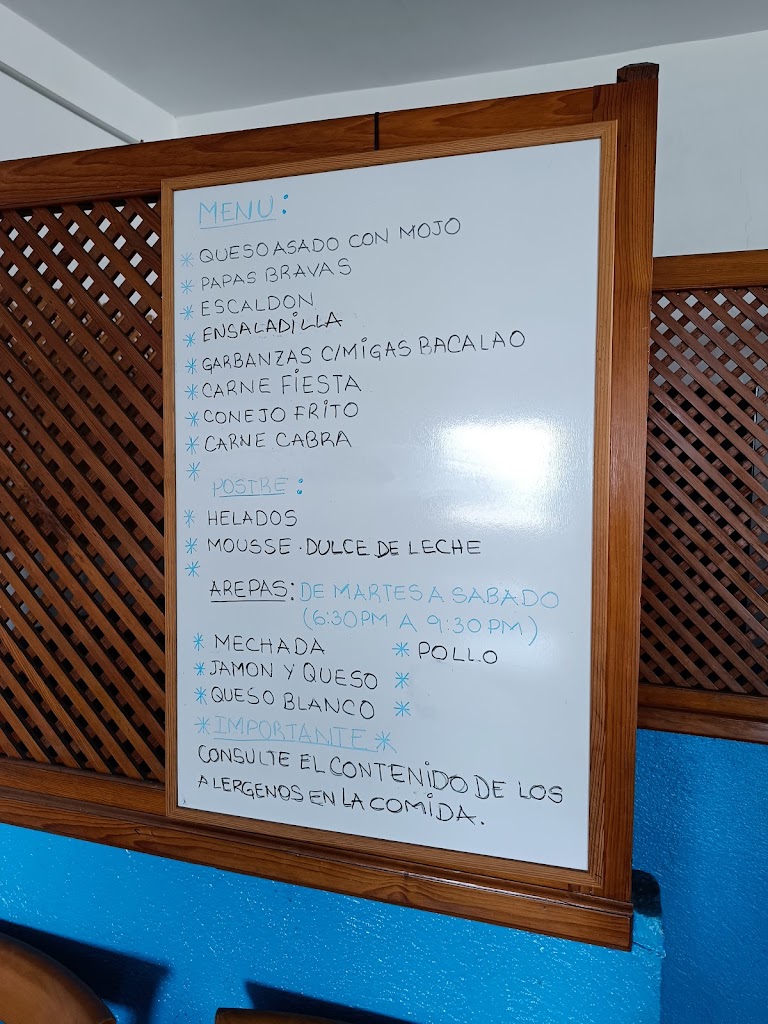 MENU:
* QUESO ASADO CON MOJO
* PAPAS BRAVAS
* ESCALDON
* ENSALADILLA
* GARBANZAS C/MIGAS BACALAO
* CARNE FIESTA
* CONEJO FRITO
* CARNE CABRA
*
POSTRE:
* HELADOS
* MOUSSE · DULCE DE LECHE
*
AREPAS: DE MARTES A SABADO
(6:30 PM A 9:30 PM)
* MECHADA * POLLO
* JAMON Y QUESO *
* QUESO BLANCO *
* IMPORTANTE *
CONSULTE EL CONTENIDO DE LOS
ALERGENOS EN LA COMIDA.